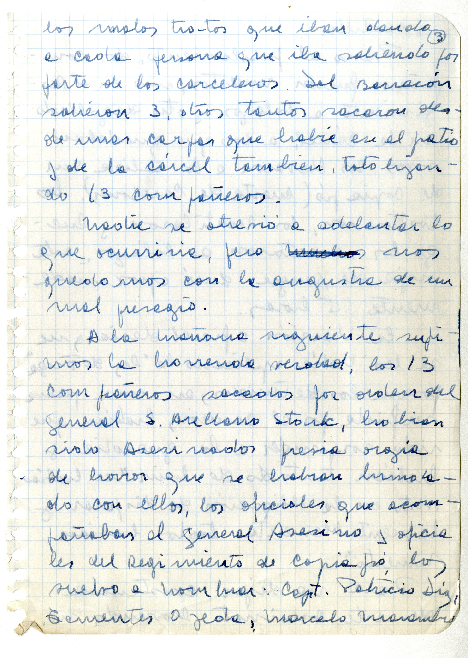 los malos tratos que iban dando ③
a cada persona que iba saliendo por
parte de los carceleros. Del barracón
salieron 3, otros tantos sacaron des-
de unas carpas que había en el patio
y de la cárcel tambien, totalizan-
do 13 compañeros.
Nadie se atrevió a adelantar lo
que ocurriria, pero nos
quedamos con la angustia de un
mal presagio.
A la mañana siguiente supi-
mos la horrenda verdad, los 13
compañeros sacados por orden del
General S. Arellano Stark, habian
sido Asesinados previa orgia
de horror que se habian brinda-
do con ellos, los oficiales que acom-
pañaban al General Asesino y oficia
les del Regimiento de Copiapó, los
vuelvo a nombrar: Capt. Patricio Díaz,
Ojeda, Marcelo Marambio